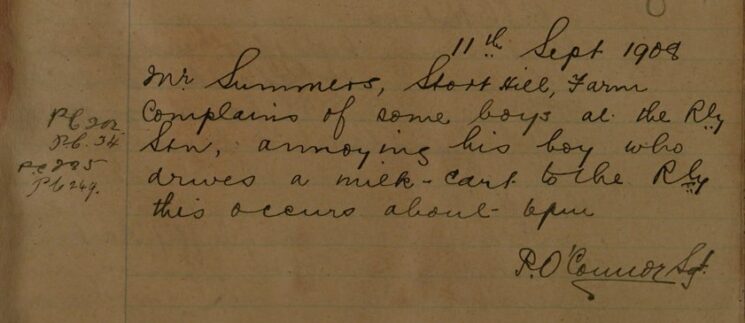 11th Sept 1908
Mr Summers, Stort Hill, Farm
Complains of some boys at the Rly
Stn, annoying his boy who
drives a milk-cart to the Rly
this occurs about 6pm
P. O'Connor Sgt.
PC 202.
PC. 34
PC 225
PC 249.